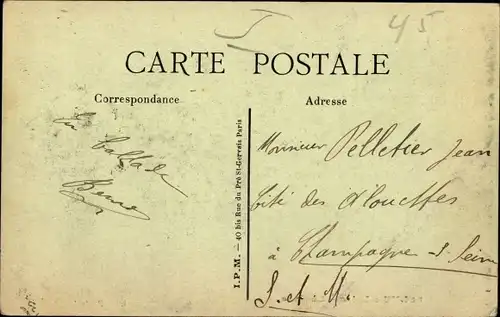 45
CARTE POSTALE
Correspondance
Adresse
En ballade
I.P.M. — 40 bis Rue du Pré St-Gervais Paris
Monsieur Pelletier Jean
Cité des Alouettes
à Champagne-s-Seine
S. et M.